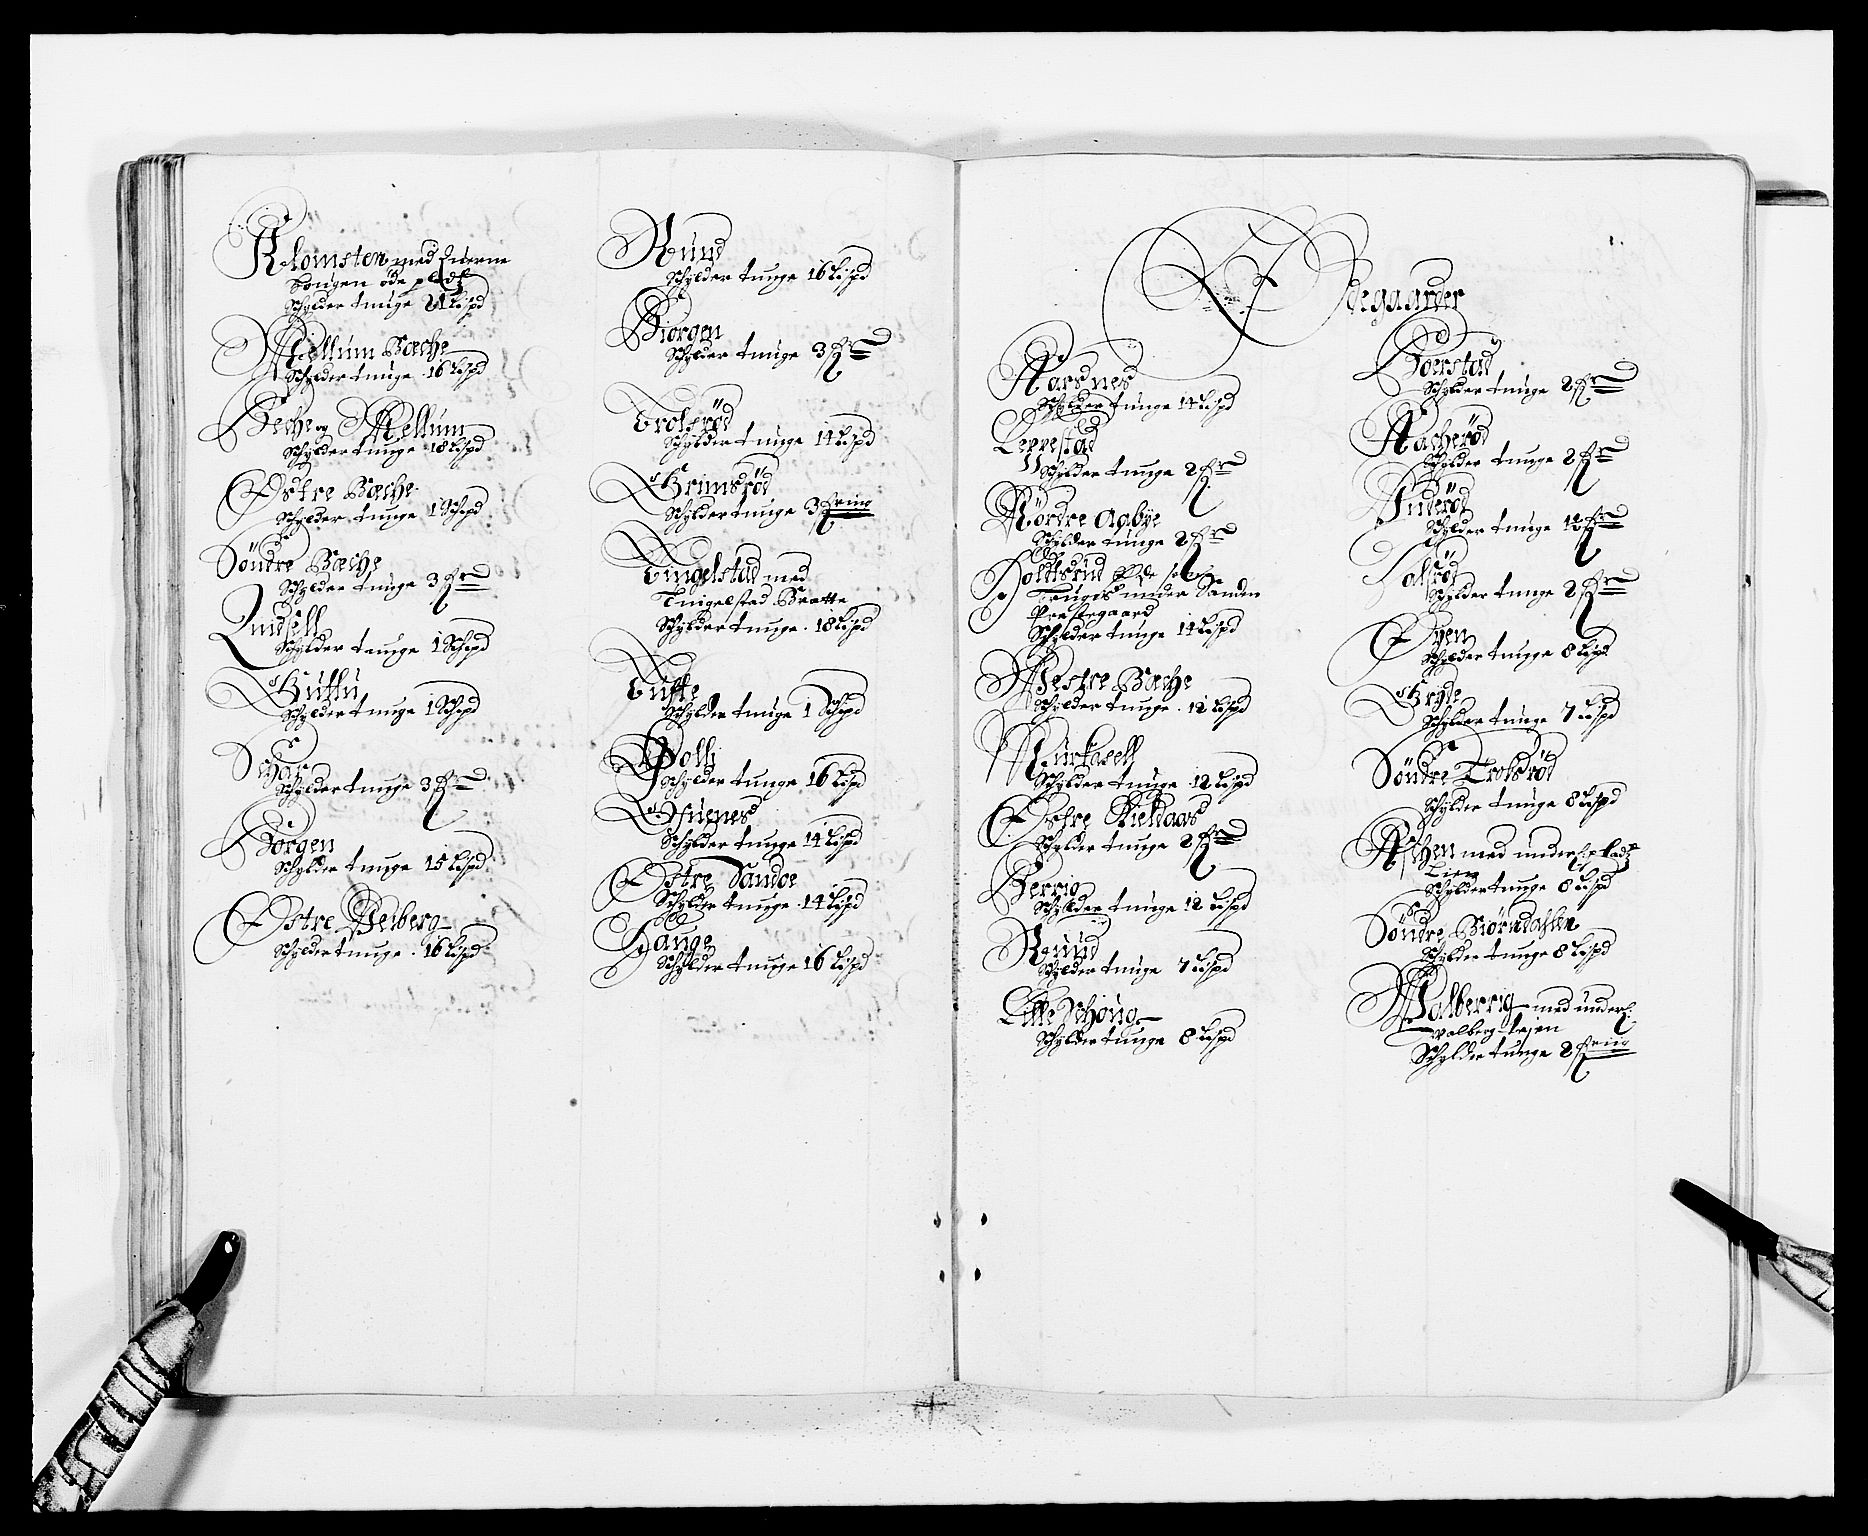 Klomsten med Enerne
Hougen öde pladz
Schylder tunge 21 Lispd
Mellum Bæche
Schylder tunge 16 Lispd
Beche og Mellum
Schylder tunge 18 Lispd
Østre Bæche
Schylder tunge 1 Schpd
Söndre Bæche
Schylder tunge 3 fr̄d
Lindsell
Schylder tunge 1 Schpd
Guttu
Schylder tunge 1 Schpd
Schar
Schylder tunge 3 fr̄d
Börgen
Schylder tunge 15 Lispd
Østre Veiberg
Schylder tunge 16 Lispd
Ruud
Schylder tunge 16 Lispd
Biörgen
Schylder tunge 3 fr̄d
Trolsröd
Schylder tunge 14 Lispd
Grimsröd
Schylder tunge 3 fring
Tingelstad med
Tingelstad Bratte
Schylder tunge 18 Lispd
Tuffte
Schylder tunge 1 Schpd
Solli
Schylder tunge 16 Lispd
Huenes
Schylder tunge 14 Lispd
Østre Sandöe
Schylder tunge 14 Lispd
Hauge
Schylder tunge 16 Lispd
Ødegaarder
Aarsnes
Schylder tunge 14 Lispd
Leppestad
Schylder tunge 2 fr̄d
Nördre Aabye
Schylder tunge 2 fr̄d
Holdtsrud
Brugis under Sanden
Prestegaard
Schylder tunge 14 Lispd
Westre Bæche
Schylder tunge 12 Lispd
Kurkasell
Schylder tunge 12 Lispd
Østre Kieldaas
Schylder tunge 2 fr̄d
Berrig
Schylder tunge 12 Lispd
Ruud
Schylder tunge 7 Lispd
Lille Schoug
Schylder tunge 8 Lispd
Boerstad
Schylder tunge 2 fr̄d
Aacheröd
Schylder tunge 2 fr̄d
Inderöd
Schylder tunge 1½ fr̄d
Talsröd
Schylder tunge 2 fr̄d
Øyen
Schylder tunge 8 Lispd
Gryde
Schylder tunge 7 Lispd
Söndre Trolsröd
Schylder tunge 8 Lispd
Aschen med underl: pladz
Lien
Schylder tunge 8 Lispd
Söndre Biörndahlen
Schylder tunge 8 Lispd
Walberrig med underl:
Walberg-Eyen
Schylder tunge 2 fring